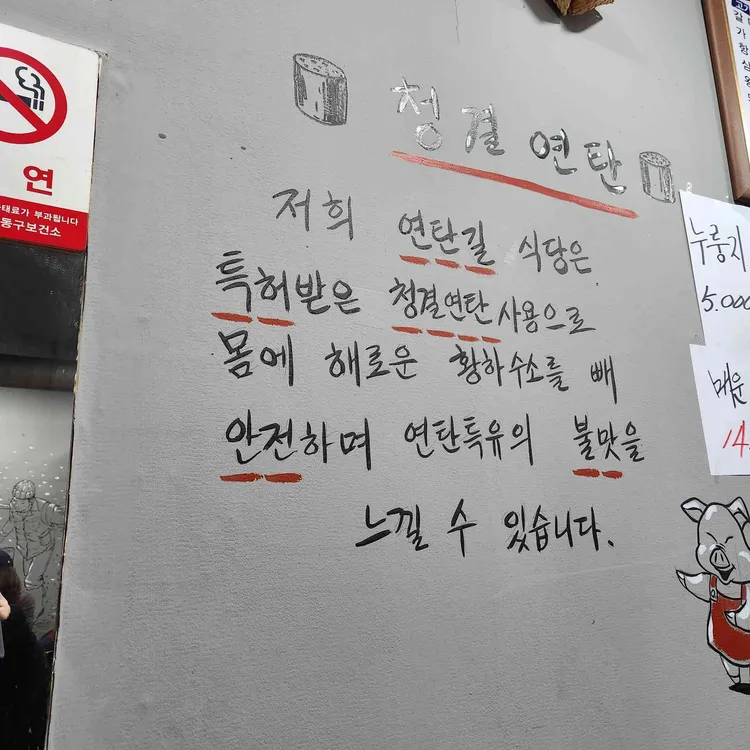 청결 연탄
저희 연탄길 식당은
특허받은 청결연탄 사용으로
몸에 해로운 황하수소를 빼
안전하며 연탄특유의 불맛을
느낄 수 있습니다.
연
태료가 부과됩니다
동구보건소
누룽지
5.000
매운
14.